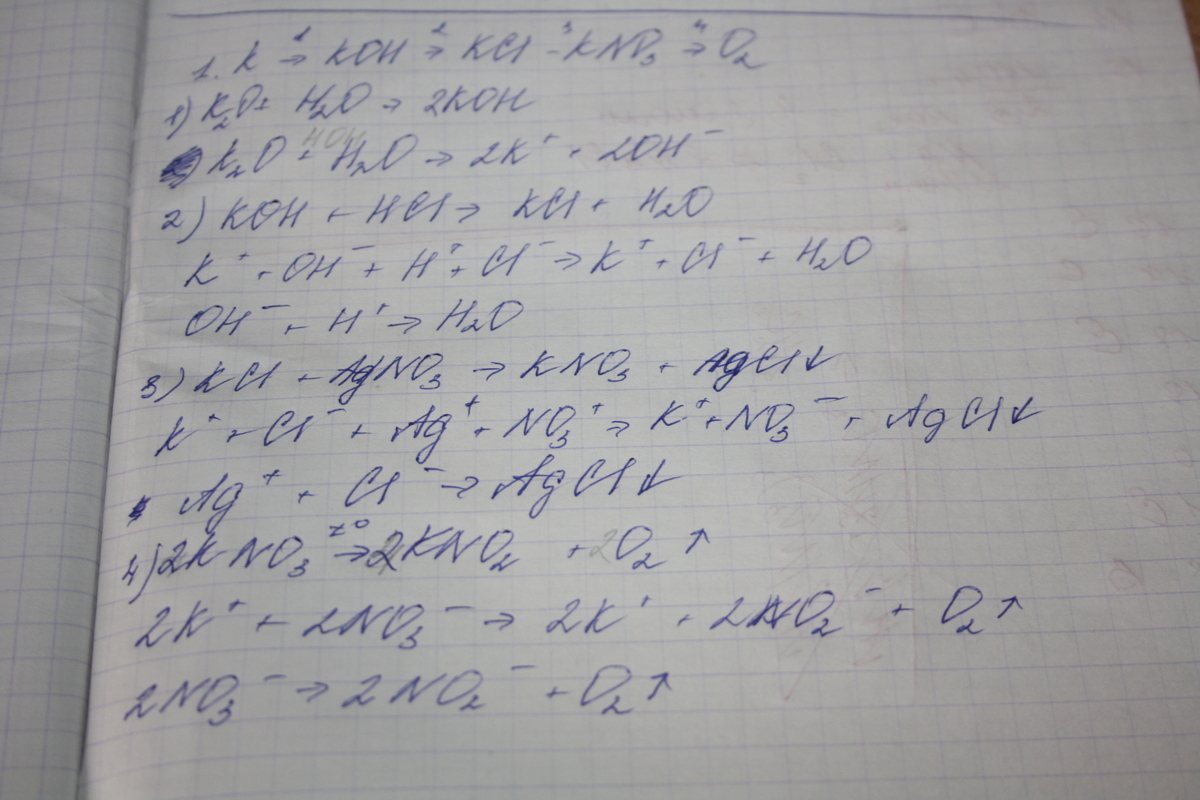 1. K →¹ KOH →² KCl –³ KNO₃ →⁴ O₂
1) K₂O + H₂O → 2KOH
K₂O + H₂O → 2K⁺ + 2OH⁻
2) KOH + HCl → KCl + H₂O
K⁺ + OH⁻ + H⁺ + Cl⁻ → K⁺ + Cl⁻ + H₂O
OH⁻ + H⁺ → H₂O
3) KCl + AgNO₃ → KNO₃ + AgCl↓
K⁺ + Cl⁻ + Ag⁺ + NO₃⁺ → K⁺ + NO₃⁻ + AgCl↓
Ag⁺ + Cl⁻ → AgCl↓
4) 2KNO₃ →t° 2KNO₂ + O₂↑
2K⁺ + 2NO₃⁻ → 2K⁺ + 2NO₂⁻ + O₂↑
2NO₃⁻ → 2NO₂⁻ + O₂↑